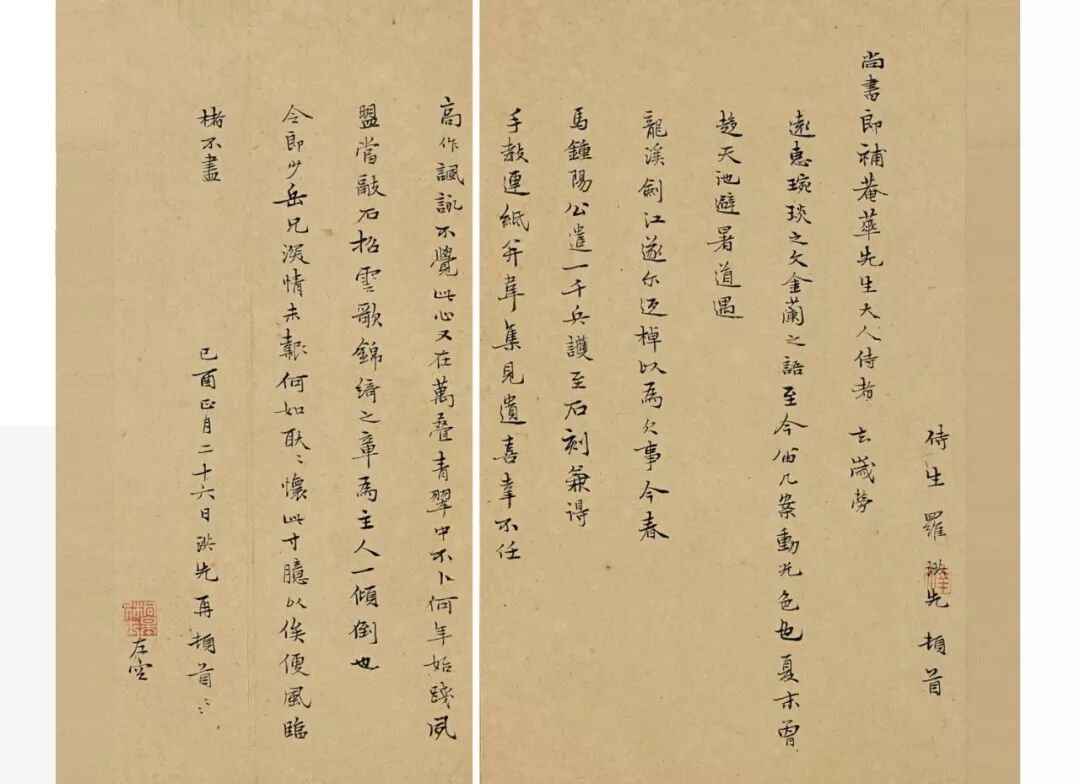 侍生羅洪先頓首
尚書郎補菴華先生大人侍者去歲勞
遠惠琬琰之文金蘭之語至今留几案動光色也夏末曾
趍天池避暑道遇
龍溪劍江遂尔返棹以為欠事今春
馬鍾陽公遣一千兵護至石刻兼得
手教連紙并韋集見遺喜幸不任
高作諷詠不覺此心又在萬叠青翠中不卜何年始踐夙
盟當敲石招雲歌錦綺之章為主人一傾倒也
令郎少岳兄深情未報何如耿〻懷此寸臆以俟便風臨
楮不盡
己酉正月二十六日洪先再頓首〻〻
左空